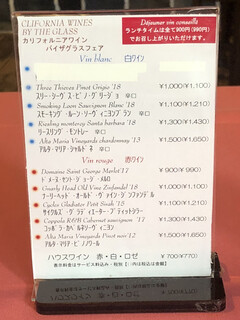 CLIFORNIA WINES
BY THE GLASS
カリフォルニアワイン
バイザグラスフェア
Déjeuner vin conseille
ランチタイムは全て900円(990円)
でお召し上がりいただけます。
Vin blanc 白ワイン
Three Thieves Pinot Grigio '18 ¥1,000(¥1,100)
スリー・シーヴス・ピノ・グリージョ
Smoking Loon Sauvignon Blanc '18 ¥1,100(¥1,210)
スモーキング・ルーン・ソーヴィニヨンブラン
Riesling monterey Santa barbara '18 ¥1,300(¥1,430)
リースリング・モントレー
Alta Maria Vineyards chardonnay '13 ¥1,500(¥1,650)
アルタ・マリア・シャルドネ
Vin rouge 赤ワイン
Domaine Saint George Merlot '17 ¥900(¥990)
ドメーヌ・セント・ジョージ・メルロ
Gnarly Head Old Vine Zinfandel '18 ¥1,000(¥1,100)
ナーリーヘッド・オールド・ヴァイン・ジンファンデル
Cycles Gladiator Petit Sirah '15 ¥1,100(¥1,210)
サイクルズ・グラディエーター・プティットシラー
Coppola R&B Cabernet sauvignon '17 ¥1,300(¥1,430)
コッポラ・カベルネソーヴィニヨン
Alta Maria Vineyards Pinot noir '12 ¥1,500(¥1,650)
アルタ・マリア・ピノノワール
ハウスワイン 赤・白・ロゼ ¥700(¥770)
表示料金はサービス料込み・税別【()内は税込は金額】